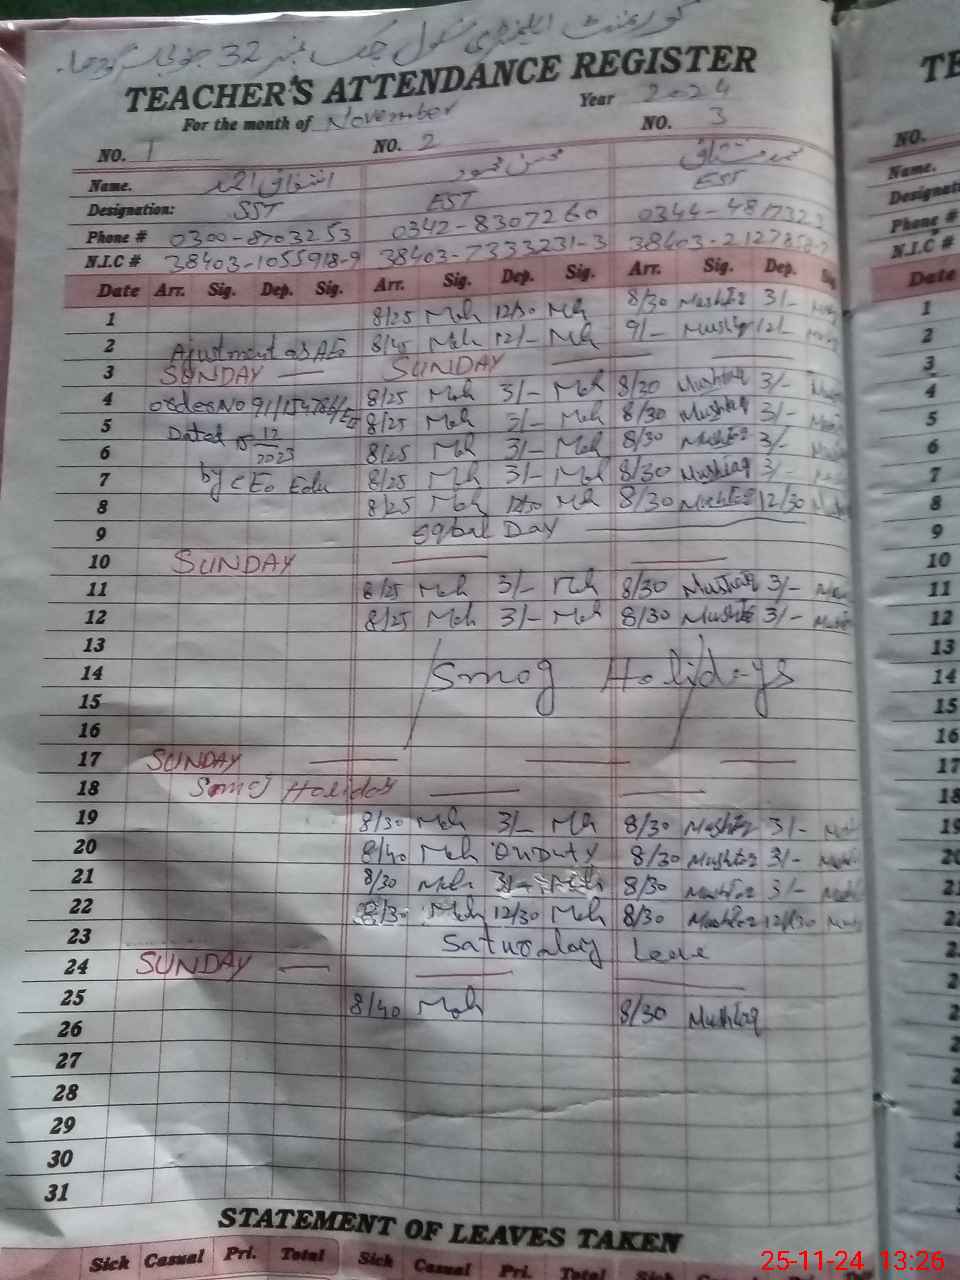 گورنمنٹ ایلیمنٹری سکول چک نمبر 32 جنوبی سرگودھا۔
TEACHER'S ATTENDANCE REGISTER
For the month of November Year 2024
NO. 1 NO. 2 NO. 3
Name. اشتیاق احمد محسن محمود محمد مشتاق
Designation: SST EST EST
Phone # 0300-8703253 0342-8307260 0344-481732
N.I.C # 38403-1055918-9 38403-7333231-3 38403-2127858-
Date Arr. Sig. Dep. Sig. Arr. Sig. Dep. Sig. Arr. Sig. Dep.
1 8/25 Moh 12/30 Moh 8/30 3/-
2 Ajustment as AEo 8/45 Moh 12/- Moh 9/- Mushtaq 12/-
3 SUNDAY — SUNDAY —
4 orderNo 91/ 8/25 Moh 3/- Moh 8/20 Mushtaq 3/-
5 Dated 15 12 8/25 Moh 3/- Moh 8/30 Mushtaq 3/-
6 2023 8/25 Moh 3/- Moh 8/30 3/-
7 by CEo Edu 8/25 Moh 3/- Moh 8/30 Mushtaq 3/-
8 8/25 Moh 12/30 Moh 8/30 12/30
9 Eqbal Day —
10 SUNDAY — —
11 8/25 Moh 3/- Moh 8/30 Mushtaq 3/-
12 8/25 Moh 3/- Moh 8/30 3/-
13
14 Smog Holidays
15
16
17 SUNDAY — — —
18 Smog Holiday — —
19 8/30 Moh 3/- Moh 8/30 3/-
20 8/40 Moh OnDuty 8/30 3/-
21 8/30 Moh 3/- Moh 8/30 3/-
22 8/30 Moh 12/30 Moh 8/30 12/30
23 Saturday Leave
24 SUNDAY — — —
25 8/40 Moh 8/30 Mushtaq
26
27
28
29
30
31
STATEMENT OF LEAVES TAKEN
Sick Casual Pri. Total Sick Casual Pri. Total Sick
25-11-24 13:26
TE
NO.
Name.
Designati
Phone #
N.I.C #
Date
1
2
3
4
5
6
7
8
9
10
11
12
13
14
15
16
17
18